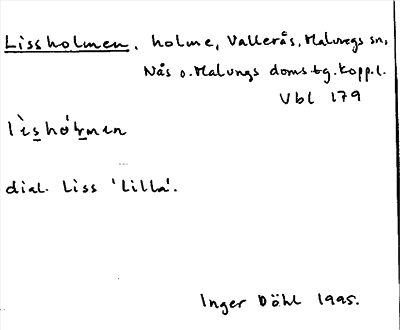 Lissholmen, holme, Vallerås, Malungs sn,
Nås o. Malungs doms tg. Kopp. l.
Vbl 179
dial. Liss 'Lilla'.
Inger Döhl 1995.